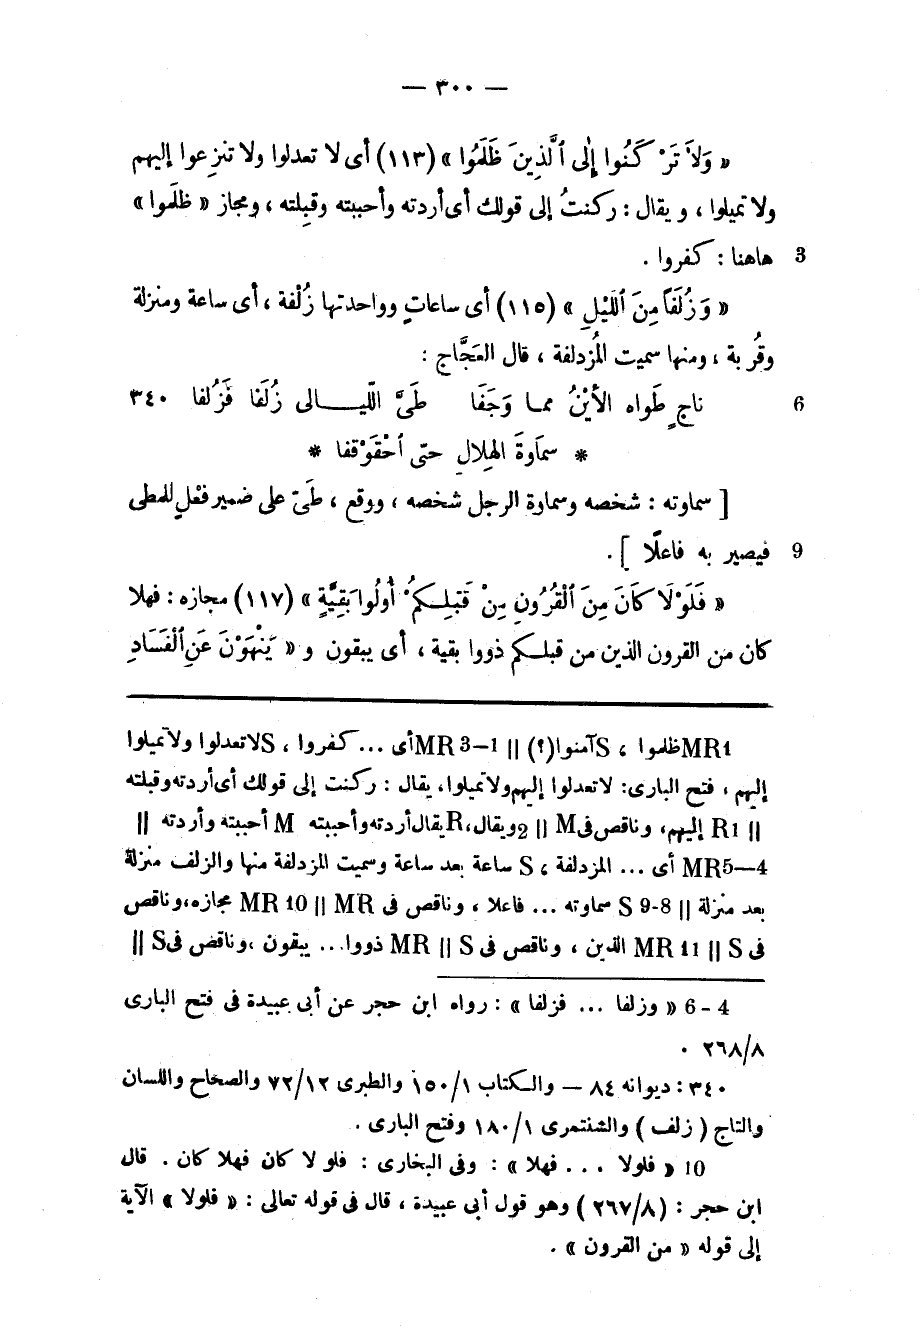 — ٣٠٠ —
« وَلاَ تَرْ كَنُوا إِلَى ٱلَّذِينَ ظَلَمُوا » (١١٣) أى لا تعدلوا ولا تنزعوا إليهم
ولا تميلوا ، و يقال : ركنتُ إلى قولك أى أردته وأحببته وقبِلته ، ومجاز « ظلَموا »
هاهنا : كفروا . 3
« وَزُلَفَاً مِنَ ٱللَّيْلِ » (١١٥) أى ساعاتٍ وواحدتها زُلْفة ، أى ساعة ومنزلة
وقُربة ، ومنها سميت المُزدلفة ، قال العَجَّاج :
ناجٍ طَواه الأَيْنُ ممـا وَجَفَا طَىَّ اللّيـــالى زُلَفا فَزُلفا ٣٤٠ 6
* سمَاوةَ الهِلالِ حتى ٱحْقَوْقفا *
[ سماوته : شخصه وسماوة الرجل شخصه ، ووقع ، طَىّ على ضمير فعْلٍ للمطى
فيصير به فاعلًا ] . 9
« فَلَوْ لَا كَانَ مِنَ ٱلْقُرُونِ مِنْ قَبْلِـكُمْ أُولُوا بَقِيَّةٍ » (١١٧) مجازه : فهلا
كان من القرون الذين من قبلـكم ذووا بقية ، أى يبقون و « يَنْهَوْنَ عَنِ ٱلْفَسَادِ
MR1 ظلموا ، S آمنوا (؟) || MR 3–1 أى ... كفروا ، S لا تعدلوا ولا تميلوا
إليهم ، فتح البارى: لا تعدلوا إليهم ولا تميلوا، يقال : ركنت إلى قولك أى أردته وقبلته
|| R1 إليهم، وناقص فى M || 2 ويقال، R يقال أردته وأحببته M أحببته وأردته ||
MR5—4 أى ... المزدلفة ، S ساعة بعد ساعة وسميت المزدلفة منها والزلف منزلة
بعد منزلة || S 9-8 سماوته ... فاعلا ، وناقص فى MR || MR 10 مجازه، وناقص
فى S || MR 11 الذين ، وناقص فى S || MR ذووا... يبقون ، وناقص فى S ||
4 - 6 « وزلفا ... فزلفا » : رواه ابن حجر عن أبى عبيدة فى فتح البارى
٢٦٨/٨ .
٣٤٠ : ديوانه ٨٤ — والـكتاب ١٥٠/١ والطبرى ٧٢/١٢ والصحاح واللسان
والتاج ( زلف ) والشنتمرى ١٨٠/١ وفتح البارى .
10 « فلولا . . . فهلا » : وفى البخارى : فلو لا كان فهلا كان . قال
ابن حجر : (٢٦٧/٨) وهو قول أبى عبيدة ، قال فى قوله تعالى : « فلولا » الآية
إلى قوله « من القرون » .